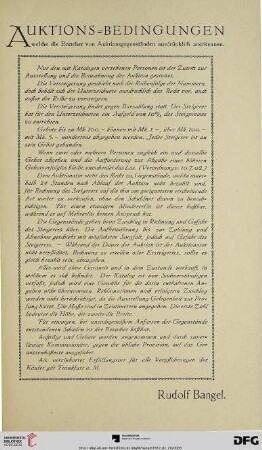 AUKTIONS-BEDINGUNGEN
welche die Ersteher von Auktionsgegenständen ausdrücklich anerkennen.
Nur den mit Katalogen versehenen Personen ist der Zutritt zur
Ausstellung und die Beiwohnung der Auktion gestattet.
Die Versteigerung geschieht nach der Reihenfolge der Nummern,
doch behält sich der Unterzeichnete ausdrücklich das Recht vor, auch
außer der Reihe zu versteigern.
Die Versteigerung findet gegen Barzahlung statt. Der Steigerer
hat für den Unterzeichneten ein Aufgeld von 10%, des Steigpreises
zu entrichten.
Gebote bis zu Mk 100.— können mit Mk 1.—, über Mk 100.—
mit Mk 5.— mindestens abgegeben werden. Jeder Steigerer ist an
sein Gebot gebunden.
Wenn zwei oder mehrere Personen zugleich ein und dasselbe
Gebot abgeben und die Aufforderung zur Abgabe eines höheren
Gebots erfolglos bleibt, entscheidet das Los.
Dem Auktionator steht das Recht zu, Gegenstände, welche inner-
halb 24 Stunden nach Ablauf der Auktion nicht bezahlt sind,
für Rechnung des Steigerers auf die ihm am geeignetsten erscheinende
Art weiter zu verkaufen, ohne den Schuldner davon zu benach-
richtigen. Für einen etwaigen Mindererlös ist dieser haftbar,
während er auf Mehrerlös keinen Anspruch hat.
Die Gegenstände gehen beim Zuschlag in Rechnung und Gefahr
des Steigerers über. Die Aufbewahrung bis zur Zahlung und
Abnahme geschieht mit möglichster Sorgfalt, jedoch auf Gefahr des
Steigerers. — Während der Dauer der Auktion ist der Auktionator
nicht verpflichtet, Rechnung zu erteilen
Alles wird ohne Garantie und in dem Zustande verkauft, in
welchem es sich befindet. Der Katalog ist von Sachverständigen
verfaßt, jedoch wird eine Gewähr für die darin enthaltenen An-
gaben nicht übernommen. Reklamationen nach erfolgtem Zuschlag
werden nicht berücksichtigt, da die Ausstellung Gelegenheit zur Prü-
fung bietet. Die Maße sind in Zentimetern angegeben. Die erste Zahl
bedeutet die Höhe, die zweite die Breite.
Für etwaigen, bei unvorsichtigem Anfassen der Gegenstände
entstandenen Schaden ist der Besucher haftbar.
Aufträge und Gebote werden angenommen und durch zuver-
lässige Kommissionäre, gegen die übliche Provision, auf das Ge-
wissenhafteste ausgeführt.
Als vereinbarter Erfüllungsort für alle Verpflichtungen des
Käufer gilt Frankfurt a. M.
Rudolf Bangel.
DFG